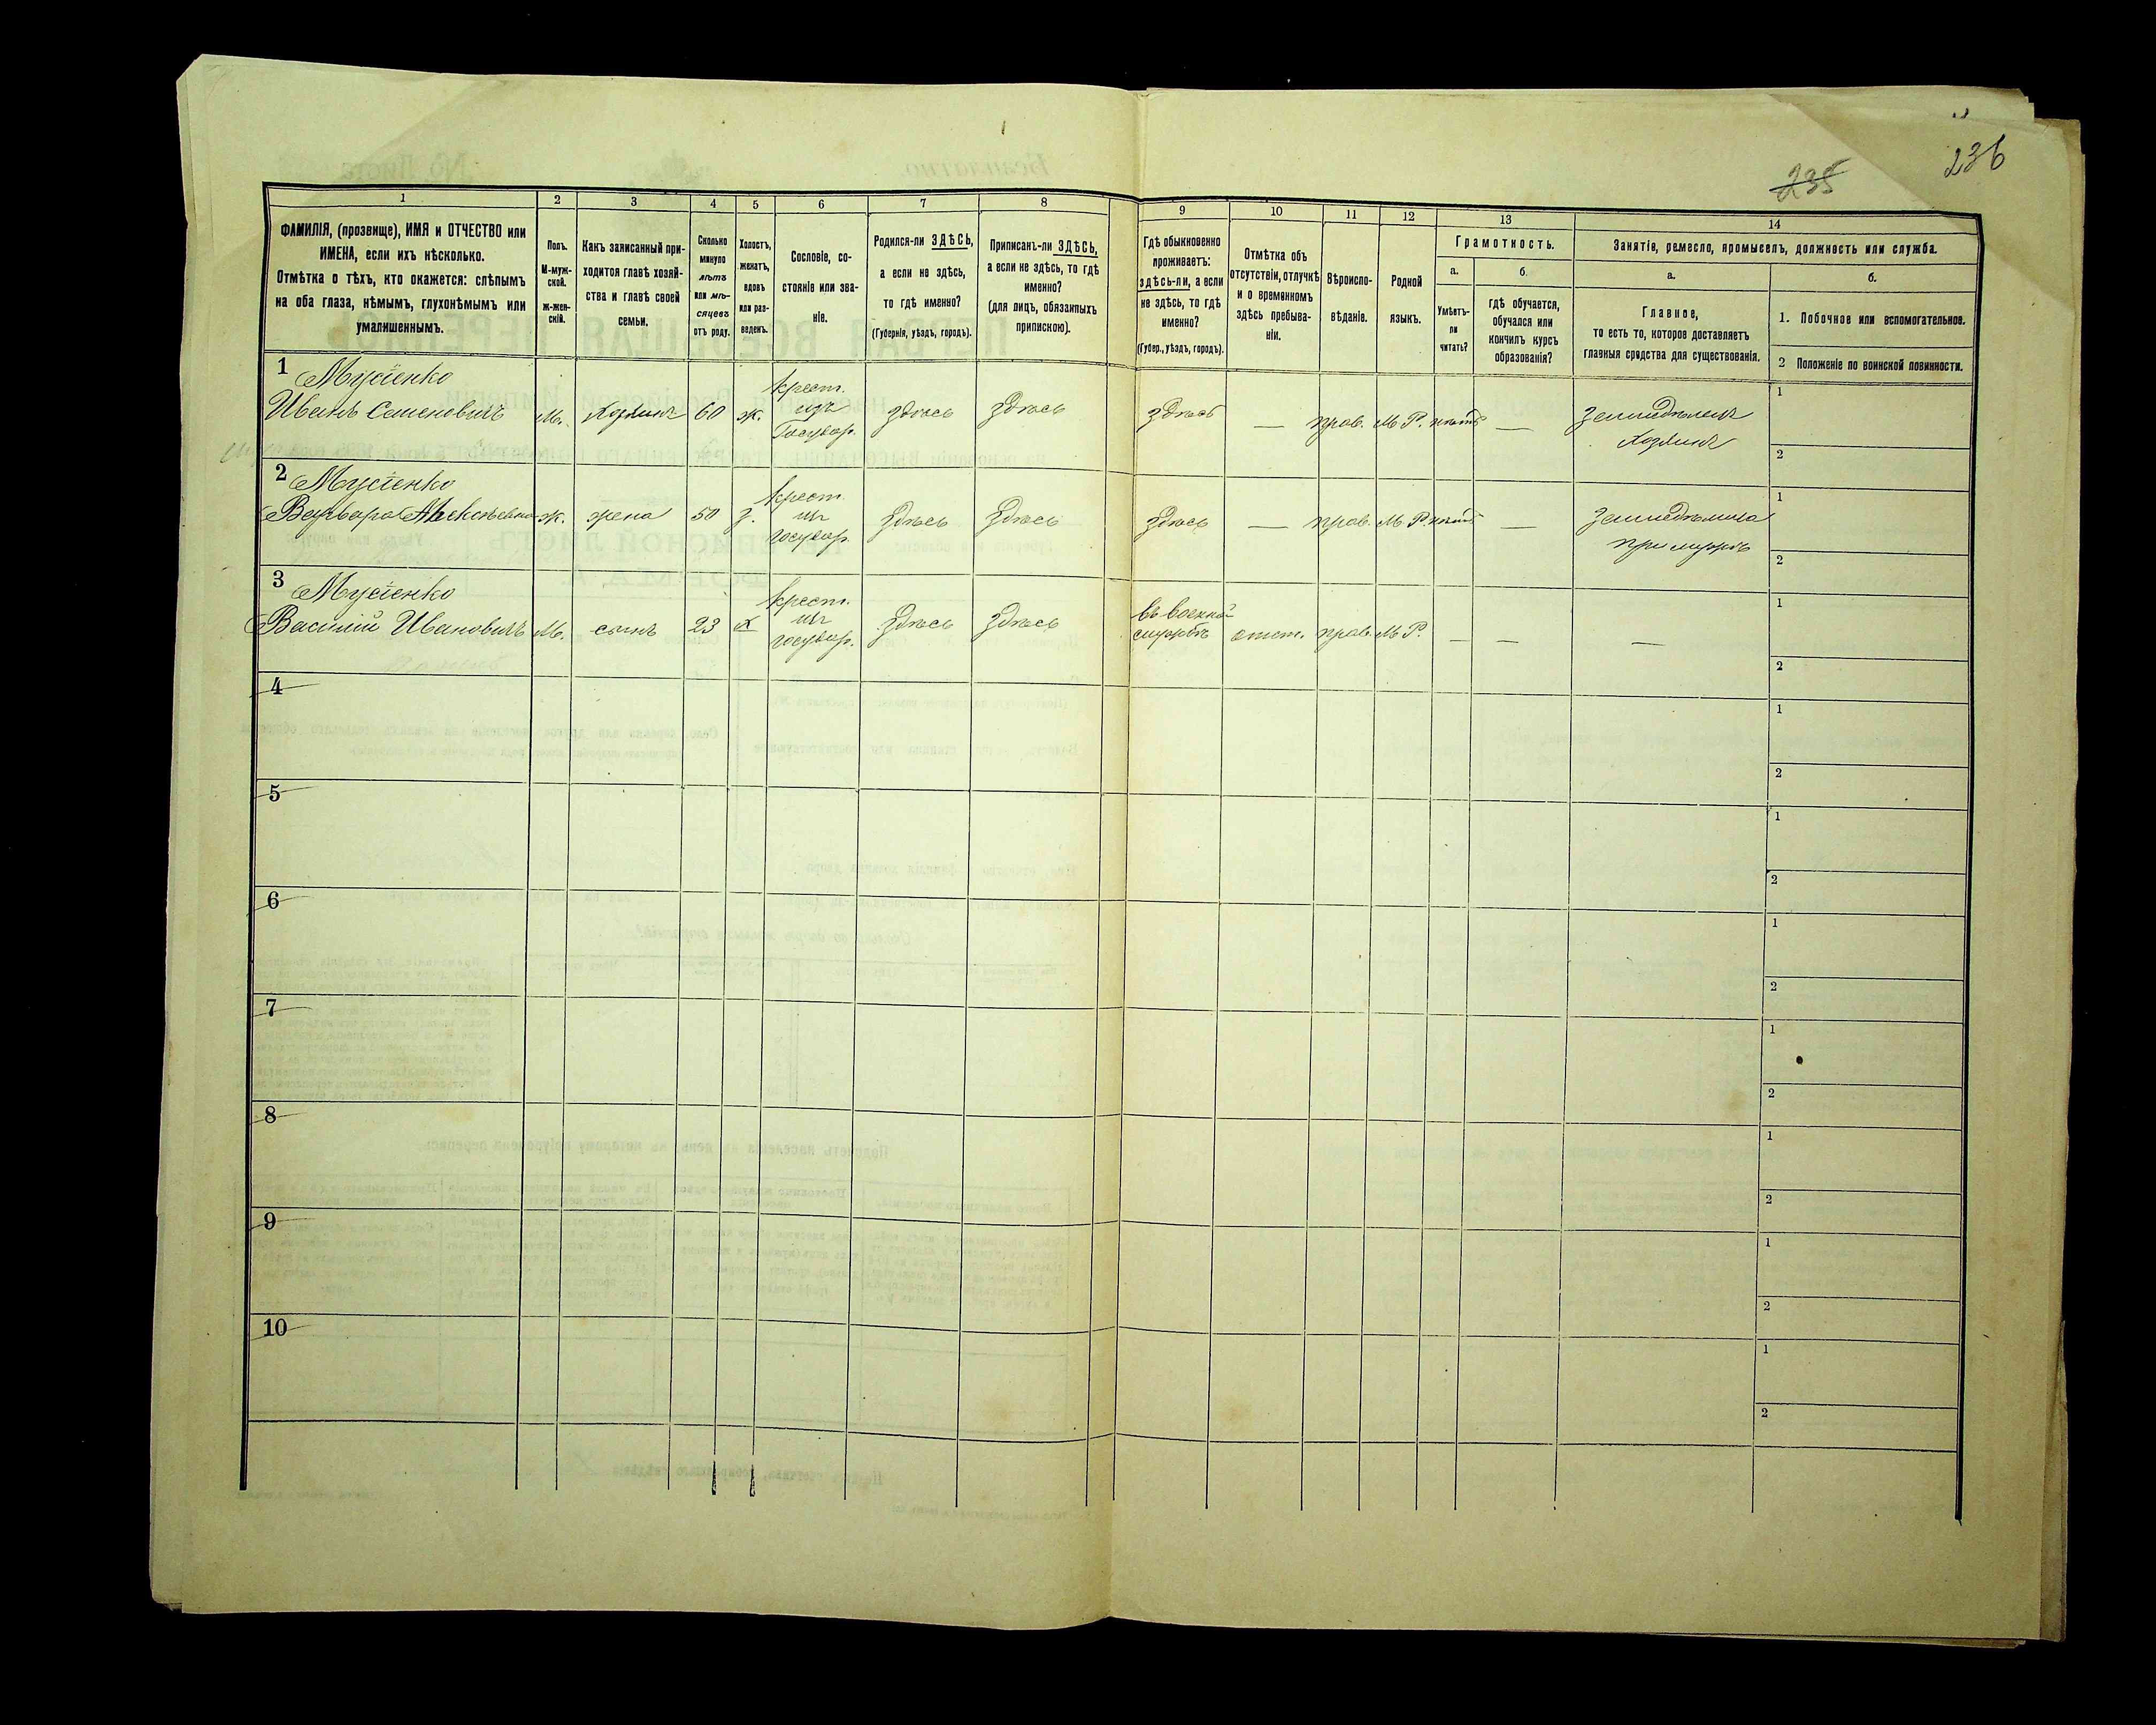 236
235
1
2
3
4
5
6
7
8
9
10
11
12
13
14
ФАМИЛІЯ, (прозвище), ИМЯ и ОТЧЕСТВО или
ИМЕНА, если ихъ нѣсколько.
Отмѣтка о тѣхъ, кто окажется: слѣпымъ
на оба глаза, нѣмымъ, глухонѣмымъ или
умалишеннымъ.
Полъ.
М-муж-
ской.
Ж-жен-
скій.
Какъ записанный при-
ходится главѣ хозяй-
ства и главѣ своей
семьи.
Сколько
минуло
лѣтъ
или мѣ-
сяцевъ
отъ роду.
Холостъ,
женатъ,
вдовъ
или раз-
веденъ.
Сословіе, со-
стояніе или зва-
ніе.
Родился-ли ЗДѢСЬ,
а если не здѣсь,
то гдѣ именно?
(Губернія, уѣздъ, городъ).
Приписанъ-ли ЗДѢСЬ,
а если не здѣсь, то гдѣ
именно?
(для лицъ, обязанныхъ
припискою).
Гдѣ обыкновенно
проживаетъ:
здѣсь-ли, а если
не здѣсь, то гдѣ
именно?
(Губер., уѣздъ, городъ).
Отмѣтка объ
отсутствіи, отлучкѣ
и о временномъ
здѣсь пребыва-
ніи.
Вѣроиспо-
вѣданіе.
Родной
языкъ.
Грамотность.
а.
Умѣетъ-
ли
читать?
б.
гдѣ обучается,
обучался или
кончилъ курсъ
образованія?
Занятіе, ремесло, промыселъ, должность или служба.
а.
Главное,
то есть то, которое доставляетъ
главныя средства для существованія.
б.
1. Побочное или вспомогательное.
2 Положеніе по воинской повинности.
1 Мусіенко
Иванъ Семеновичъ М. Хозяинъ 60 ж. крест. изъ Государ. здѣсь здѣсь здѣсь — прав. М Р. нѣтъ — Земледѣлецъ
Хозяинъ
1
2
2 Мусіенко
Варвара Алексѣевна ж. жена 50 з. крест. изъ государ. здѣсь здѣсь здѣсь — прав. М Р. нѣтъ — Земледѣлица
при мужѣ
1
2
3 Мусіенко
Василій Ивановичъ М. сынъ 23 х крест. изъ государ. здѣсь здѣсь въ военной службѣ отст. прав. М Р. — — —
1
2
4
1
2
5
1
2
6
1
2
7
1
2
8
1
2
9
1
2
10
1
2